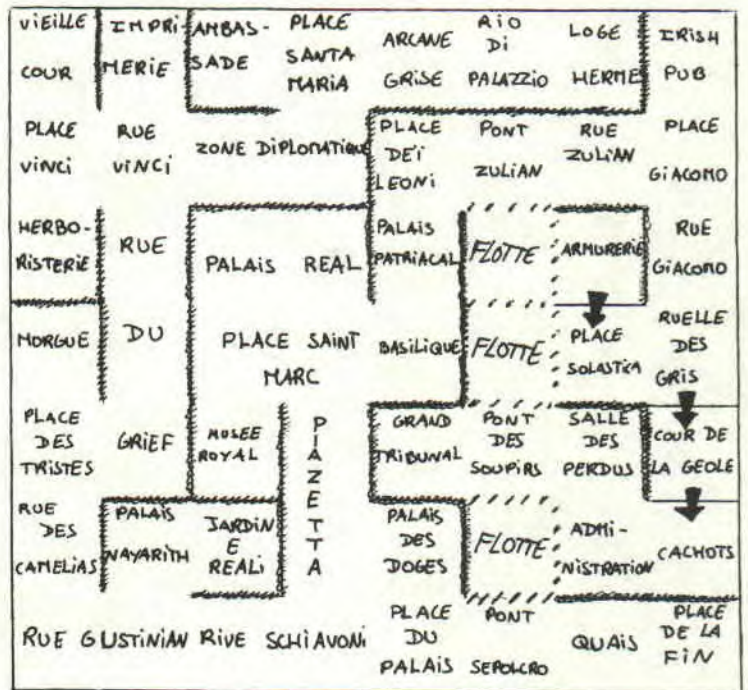 VIEILLE
COUR
IMPRI
MERIE
AMBAS-
SADE
PLACE
SANTA
MARIA
ARCANE
GRISE
RIO
DI
PALAZZIO
LOGE
HERME
IRISH
PUB
PLACE
VINCI
RUE
VINCI
ZONE DIPLOMATIQUE
PLACE
DEI
LEONI
PONT
ZULIAN
RUE
ZULIAN
PLACE
GIACOMO
HERBO-
RISTERIE
RUE
DU
GRIEF
PALAIS REAL
PALAIS
PATRIACAL
FLOTTE
ARMURERIE
RUE
GIACOMO
MORGUE
PLACE SAINT
MARC
BASILIQUE
FLOTTE
PLACE
SOLASTICA
RUELLE
DES
GRIS
PLACE
DES
TRISTES
MUSEE
ROYAL
PIAZETTA
GRAND
TRIBUNAL
PONT
DES
SOUPIRS
SALLE
DES
PERDUS
COUR DE
LA GEOLE
RUE
DES
CAMELIAS
PALAIS
NAYARITH
JARDIN
E
REALI
PALAIS
DES
DOGES
FLOTTE
ADMI-
NISTRATION
CACHOTS
RUE GUSTINIAN
RIVE SCHIAVONI
PLACE
DU
PALAIS
PONT
SEPOLCRO
QUAIS
PLACE
DE LA
FIN